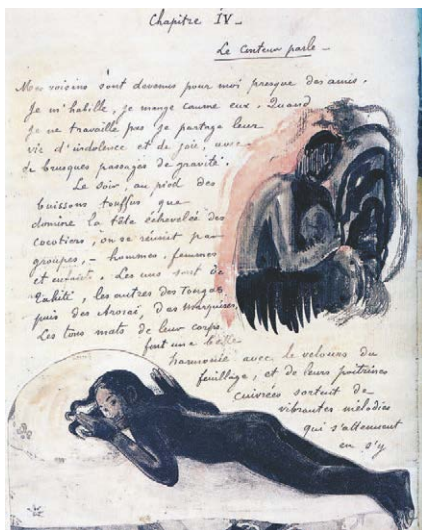 Chapitre IV_
Le Conteur parle_
Mes voisins sont devenus pour moi presque des amis.
Je m'habille, je mange comme eux. Quand
je ne travaille pas je partage leur
vie d'indolence et de joie, avec
de brusques passages de gravité.
Le soir, au pied des
buissons touffus que
domine la tête échevelée des
cocotiers, on se réunit par
groupes, – hommes, femmes
et enfants. Les uns sont de
Tahiti, les autres des Tongas
puis des Arorai, des Marquises.
Les tons mats de leur corps
font une belle
harmonie avec le velours du
feuillage, et de leurs poitrines
cuivrées sortent de
vibrantes mélodies
qui s'attenuent
en s'y